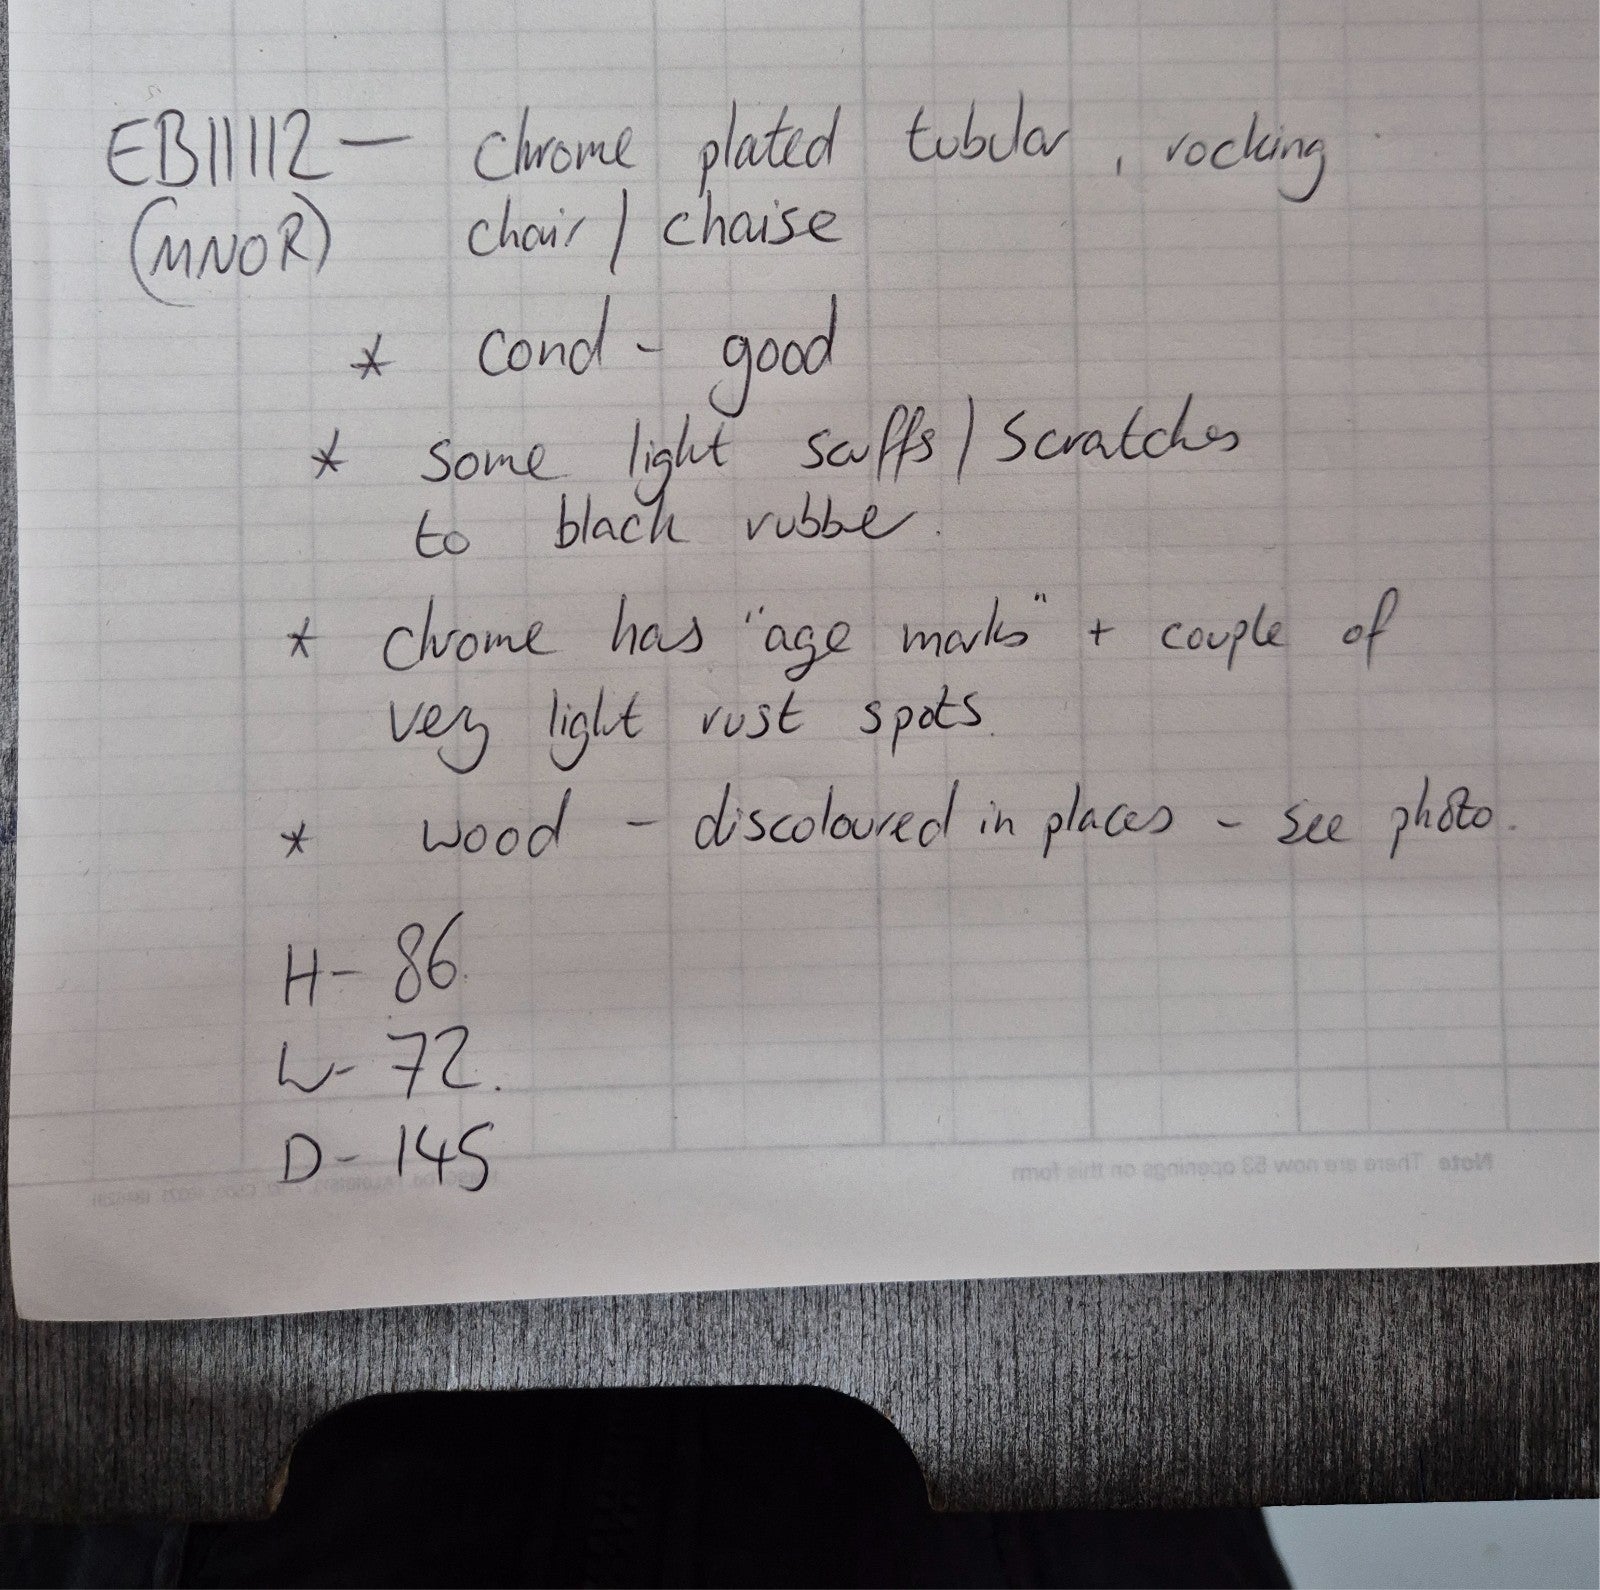 EB11112 — chrome plated tubular, rocking
(MNOR) chair / chaise
* cond - good
* some light scuffs / scratches
to black rubber.
* chrome has "age marks" + couple of
very light rust spots.
* wood - discoloured in places - see photo.
H- 86.
W- 72.
D- 145
Note There are now 53 openings on this form